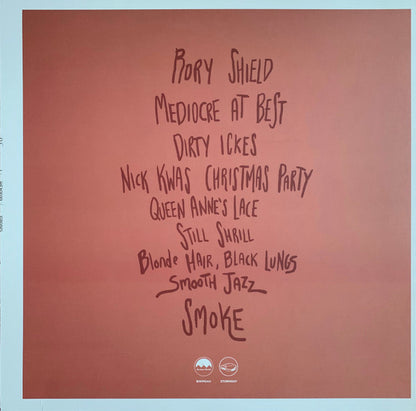 RORY SHIELD
MEDIOCRE AT BEST
DIRTY ICKES
NICK KWAS CHRISTMAS PARTY
QUEEN ANNE'S LACE
STILL SHRILL
BLONDE HAIR, BLACK LUNGS
SMOOTH JAZZ
SMOKE